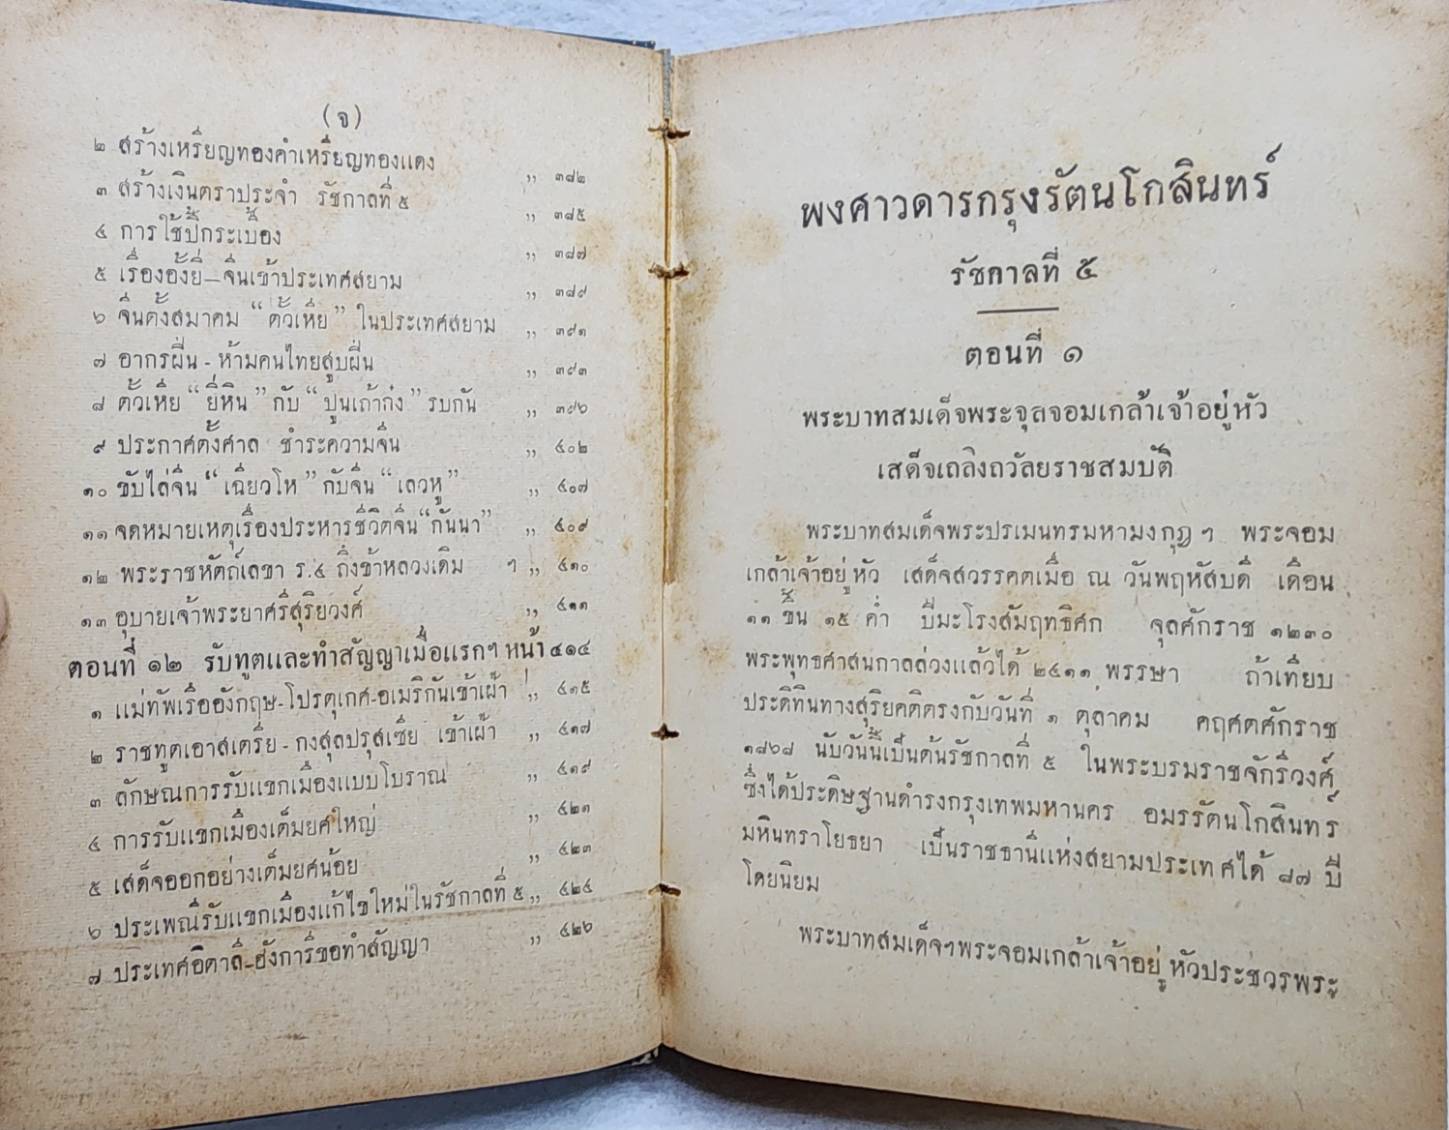 (จ)
๒ สร้างเหรียญทองคำเหรียญทองแดง ,, ๓๘๒
๓ สร้างเงินตราประจำ รัชกาลที่ ๕ ,, ๓๘๕
๔ การใช้ปี้กระเบื้อง ,, ๓๘๗
๕ เรื่องอั้งยี่—จีนเข้าประเทศสยาม ,, ๓๘๙
๖ จีนตั้งสมาคม “ตั้วเหีย” ในประเทศสยาม ,, ๓๙๑
๗ อากรฝิ่น - ห้ามคนไทยสูบฝิ่น ,, ๓๙๓
๘ ตั้วเหีย “ยี่หิน” กับ “ปูนเถ้าก๋ง” รบกัน ,, ๓๙๖
๙ ประกาศตั้งศาล ชำระความจีน ,, ๔๐๒
๑๐ ขับไล่จีน “เฉียวโห” กับจีน “เลวหู” ,, ๔๐๗
๑๑ จดหมายเหตุเรื่องประหารชีวิตจีน “กันนา” ,, ๔๐๙
๑๒ พระราชหัตถ์เลขา ร.๔ ถึงข้าหลวงเดิม ฯ ,, ๔๑๐
๑๓ อุบายเจ้าพระยาศรีสุริยวงศ์ ,, ๔๑๑
ตอนที่ ๑๒ รับทูตและทำสัญญาเมื่อแรกฯ หน้า ๔๑๔
๑ แม่ทัพเรืออังกฤษ-โปรตุเกศ-อเมริกันเข้าเฝ้า ,, ๔๑๕
๒ ราชทูตเอาสเตรีย - กงสุลปรุสเซีย เข้าเฝ้า ,, ๔๑๗
๓ ลักษณการรับแขกเมืองแบบโบราณ ,, ๔๑๙
๔ การรับแขกเมืองเต็มยศใหญ่ ,, ๔๒๑
๕ เสด็จออกอย่างเต็มยศน้อย ,, ๔๒๓
๖ ประเพณีรับแขกเมืองแก้ไขใหม่ในรัชกาลที่ ๕ ,, ๔๒๔
๗ ประเทศอิตาลี-ฮังการีขอทำสัญญา ,, ๔๒๖
พงศาวดารกรุงรัตนโกสินทร์
รัชกาลที่ ๕
ตอนที่ ๑
พระบาทสมเด็จพระจุลจอมเกล้าเจ้าอยู่หัว
เสด็จเถลิงถวัลยราชสมบัติ
พระบาทสมเด็จพระปรเมนทรมหามงกุฎ ฯ พระจอม
เกล้าเจ้าอยู่หัว เสด็จสวรรคตเมื่อ ณ วันพฤหัสบดี เดือน
๑๑ ขึ้น ๑๕ ค่ำ ปีมะโรงสัมฤทธิศก จุลศักราช ๑๒๓๐
พระพุทธศาสนกาลล่วงแล้วได้ ๒๔๑๑ พรรษา ถ้าเทียบ
ประดิทินทางสุริยคติตรงกับวันที่ ๑ ตุลาคม คฤศตศักราช
๑๘๖๘ นับวันนี้เป็นต้นรัชกาลที่ ๕ ในพระบรมราชจักรีวงศ์
ซึ่งได้ประดิษฐานดำรงกรุงเทพมหานคร อมรรัตนโกสินทร์
มหินทราโยธยา เป็นราชธานีแห่งสยามประเทศได้ ๘๗ ปี
โดยนิยม
พระบาทสมเด็จฯพระจอมเกล้าเจ้าอยู่หัวประชวรพระ